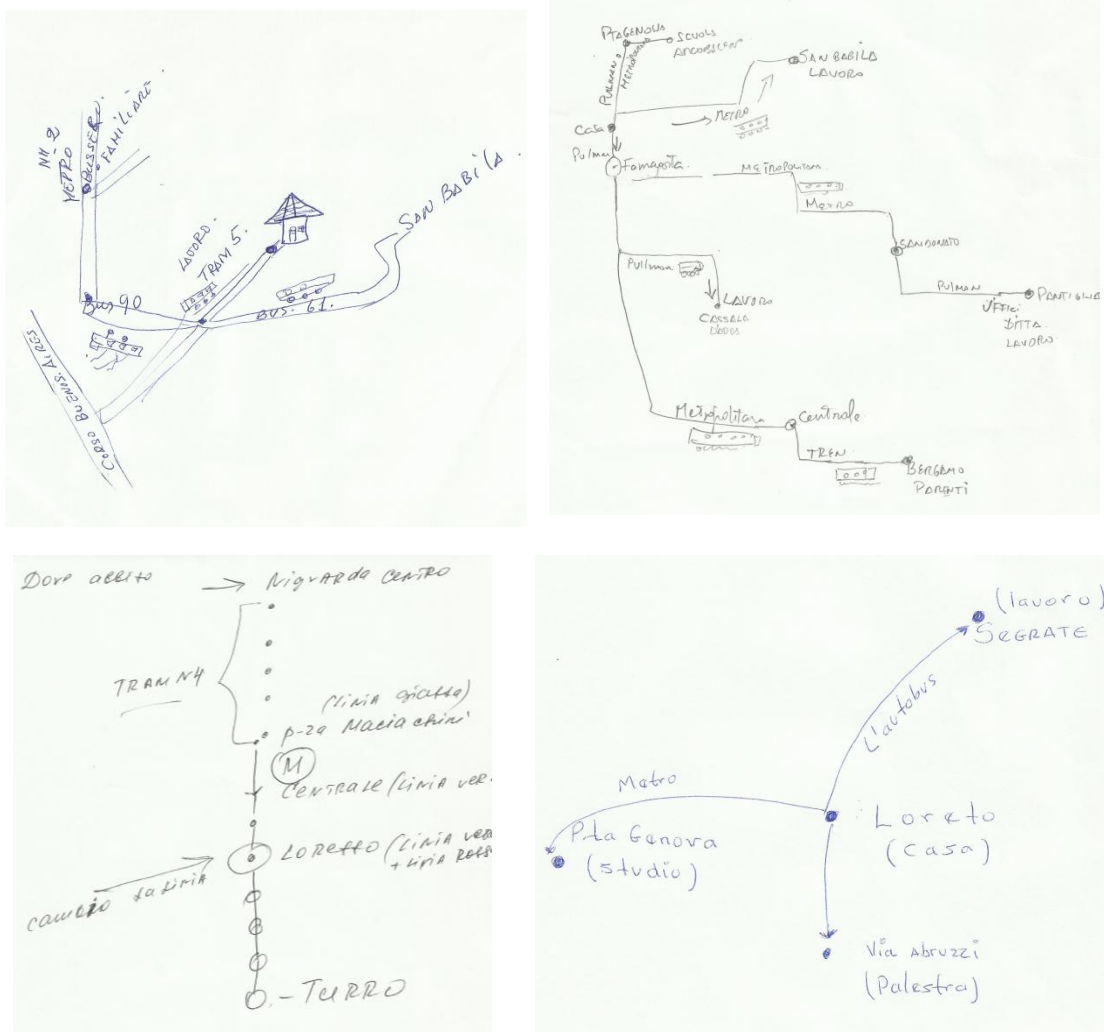 MM-2
METRO
BUSSERO
FAMILIARE
LAVORO
TRAM 5.
SAN BABILA.
BUS 90
BUS. 61.
CORSO BUENOS. AIRES
PTAGENOVA
SCUOLA
PULMANO
METROPOLITANO
SAN BABILA
LAVORO
METRO
Casa
Pulman
Famagosta.
METROPOLITANA
METRO
SANDONATO
Pullman
LAVORO
PULMAN
PANTIGLIA
UFFICI
DITTA
LAVORO
Metropolitana
Centrale
TREN
BERGAMO
PARENTI
Dove
NIGUARDA CENTRO
TRAM N4
(LINIA gialla)
P-za Maciachini
M
CENTRALE (LINIA VER
LORETTO (LINIA VER
+ LINIA ROSS
CAMBIO LA LINIA
TURRO
(lavoro)
SEGRATE
L'autobus
Metro
P.ta Genova
(studio)
Loreto
(casa)
Via Abruzzi
(Palestra)